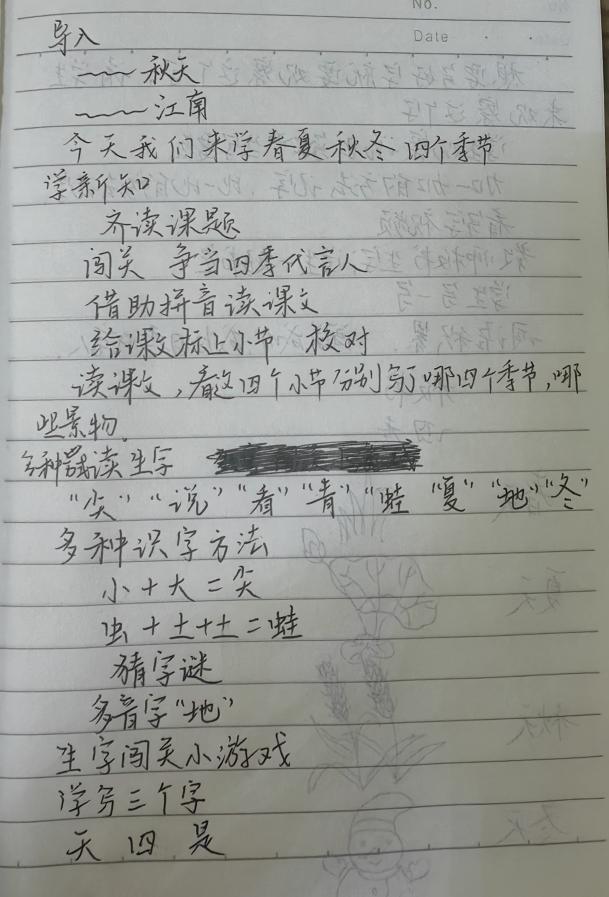 No.
Date
导入
~~~秋天
~~~江南
今天我们来学春夏秋冬四个季节
学新知
齐读课题
闯关 争当四季代言人
借助拼音读课文
给课文标上小节 校对
读课文,看这四个小节分别写了哪四个季节,哪
些景物。
多种读生字
"尖" "说" "看" "青" "蛙 "夏" "地" "冬"
多种识字方法
小+大=尖
虫+土+土=蛙
猜字谜
多音字"地"
生字闯关小游戏
学写三个字
天 四 是